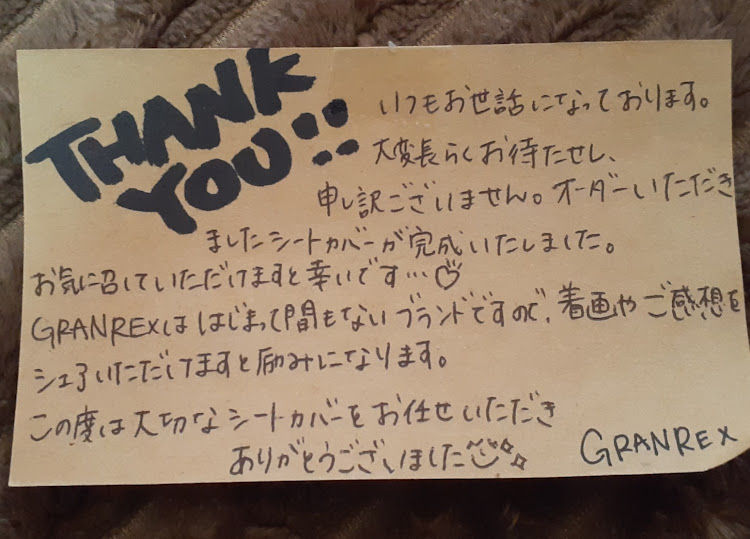 THANK
YOU!!
いつもお世話になっております。
大変長らくお待たせし、
申し訳ございません。オーダーいただき
ましたシートカバーが完成いたしました。
お気に召していただけますと幸いです…♡
GRANREXははじまって間もないブランドですので、着画やご感想を
シェアいただけますと励みになります。
この度は大切なシートカバーをお任せいただき
ありがとうございました
GRANREX